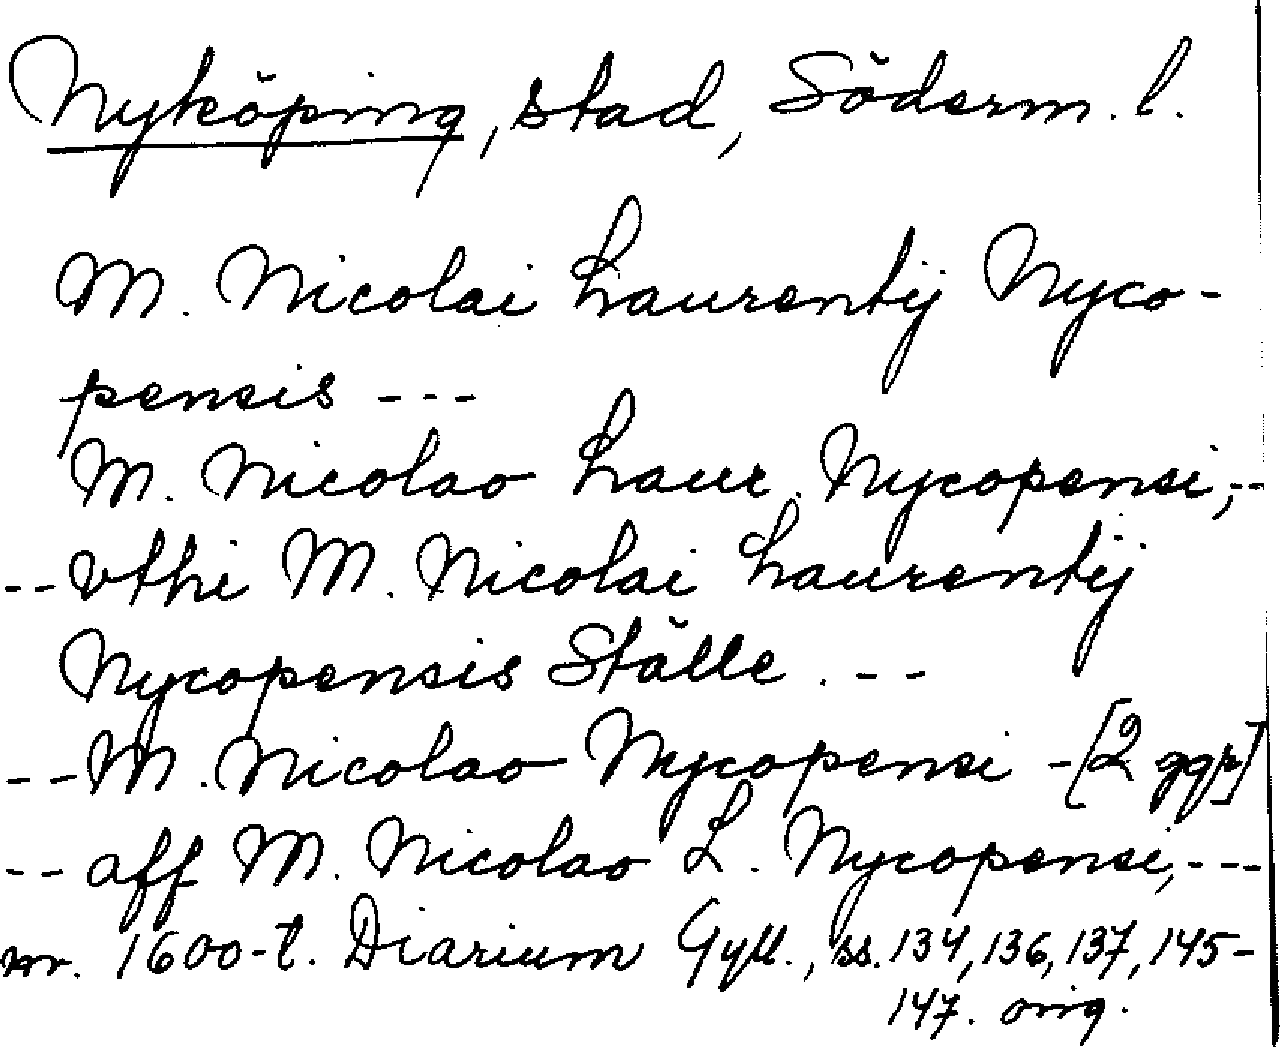 Nyköping, stad, Söderm. l.
M. Nicolai Laurentij Nyco-
pensis ---
M. Nicolao Laur. Nycopensi,--
-- vthi M. Nicolai Laurentij
Nycopensis Ställe. --
-- M. Nicolao Nycopensi -[2 ggr]
-- aff M. Nicolao L. Nycopensi,---
mr. 1600-t. Diarium Gyll., ss. 134, 136, 137, 145-
147. orig.